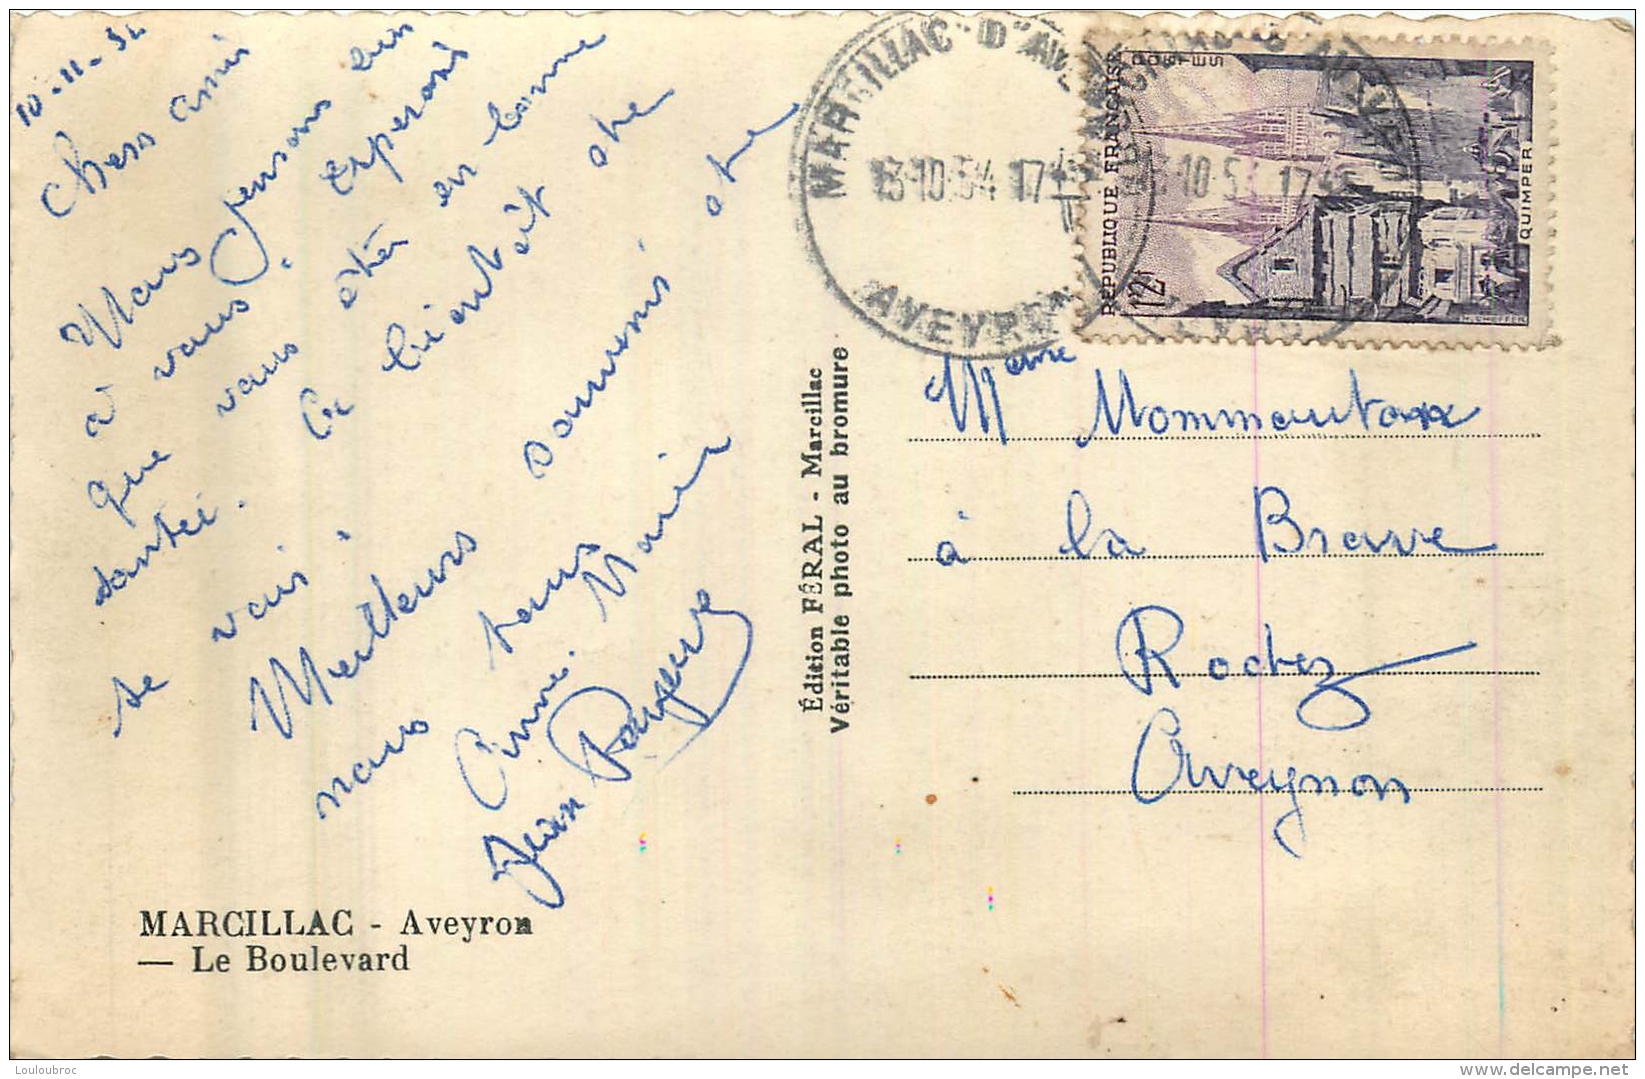 10-11-54
Chers amis
Nous pensons bien
à vous. Esperons
que vous êtes en bonne
santée. Ce bientôt de
se voir.
Meilleurs souvenirs de
nous tous
Anne. Marie
Jean
MARCILLAC - Aveyron
— Le Boulevard
Édition FÉRAL - Marcillac
Véritable photo au bromure
MARCILLAC-D'AVEYRON
13-10-54 17
AVEYRON
RÉPUBLIQUE FRANÇAISE
POSTES
12F
QUIMPER
H. CHEFFER
Meme Mommoutoxx
à la Brauve
Rodez
Aveynon
Louloubroc
delcampe.net